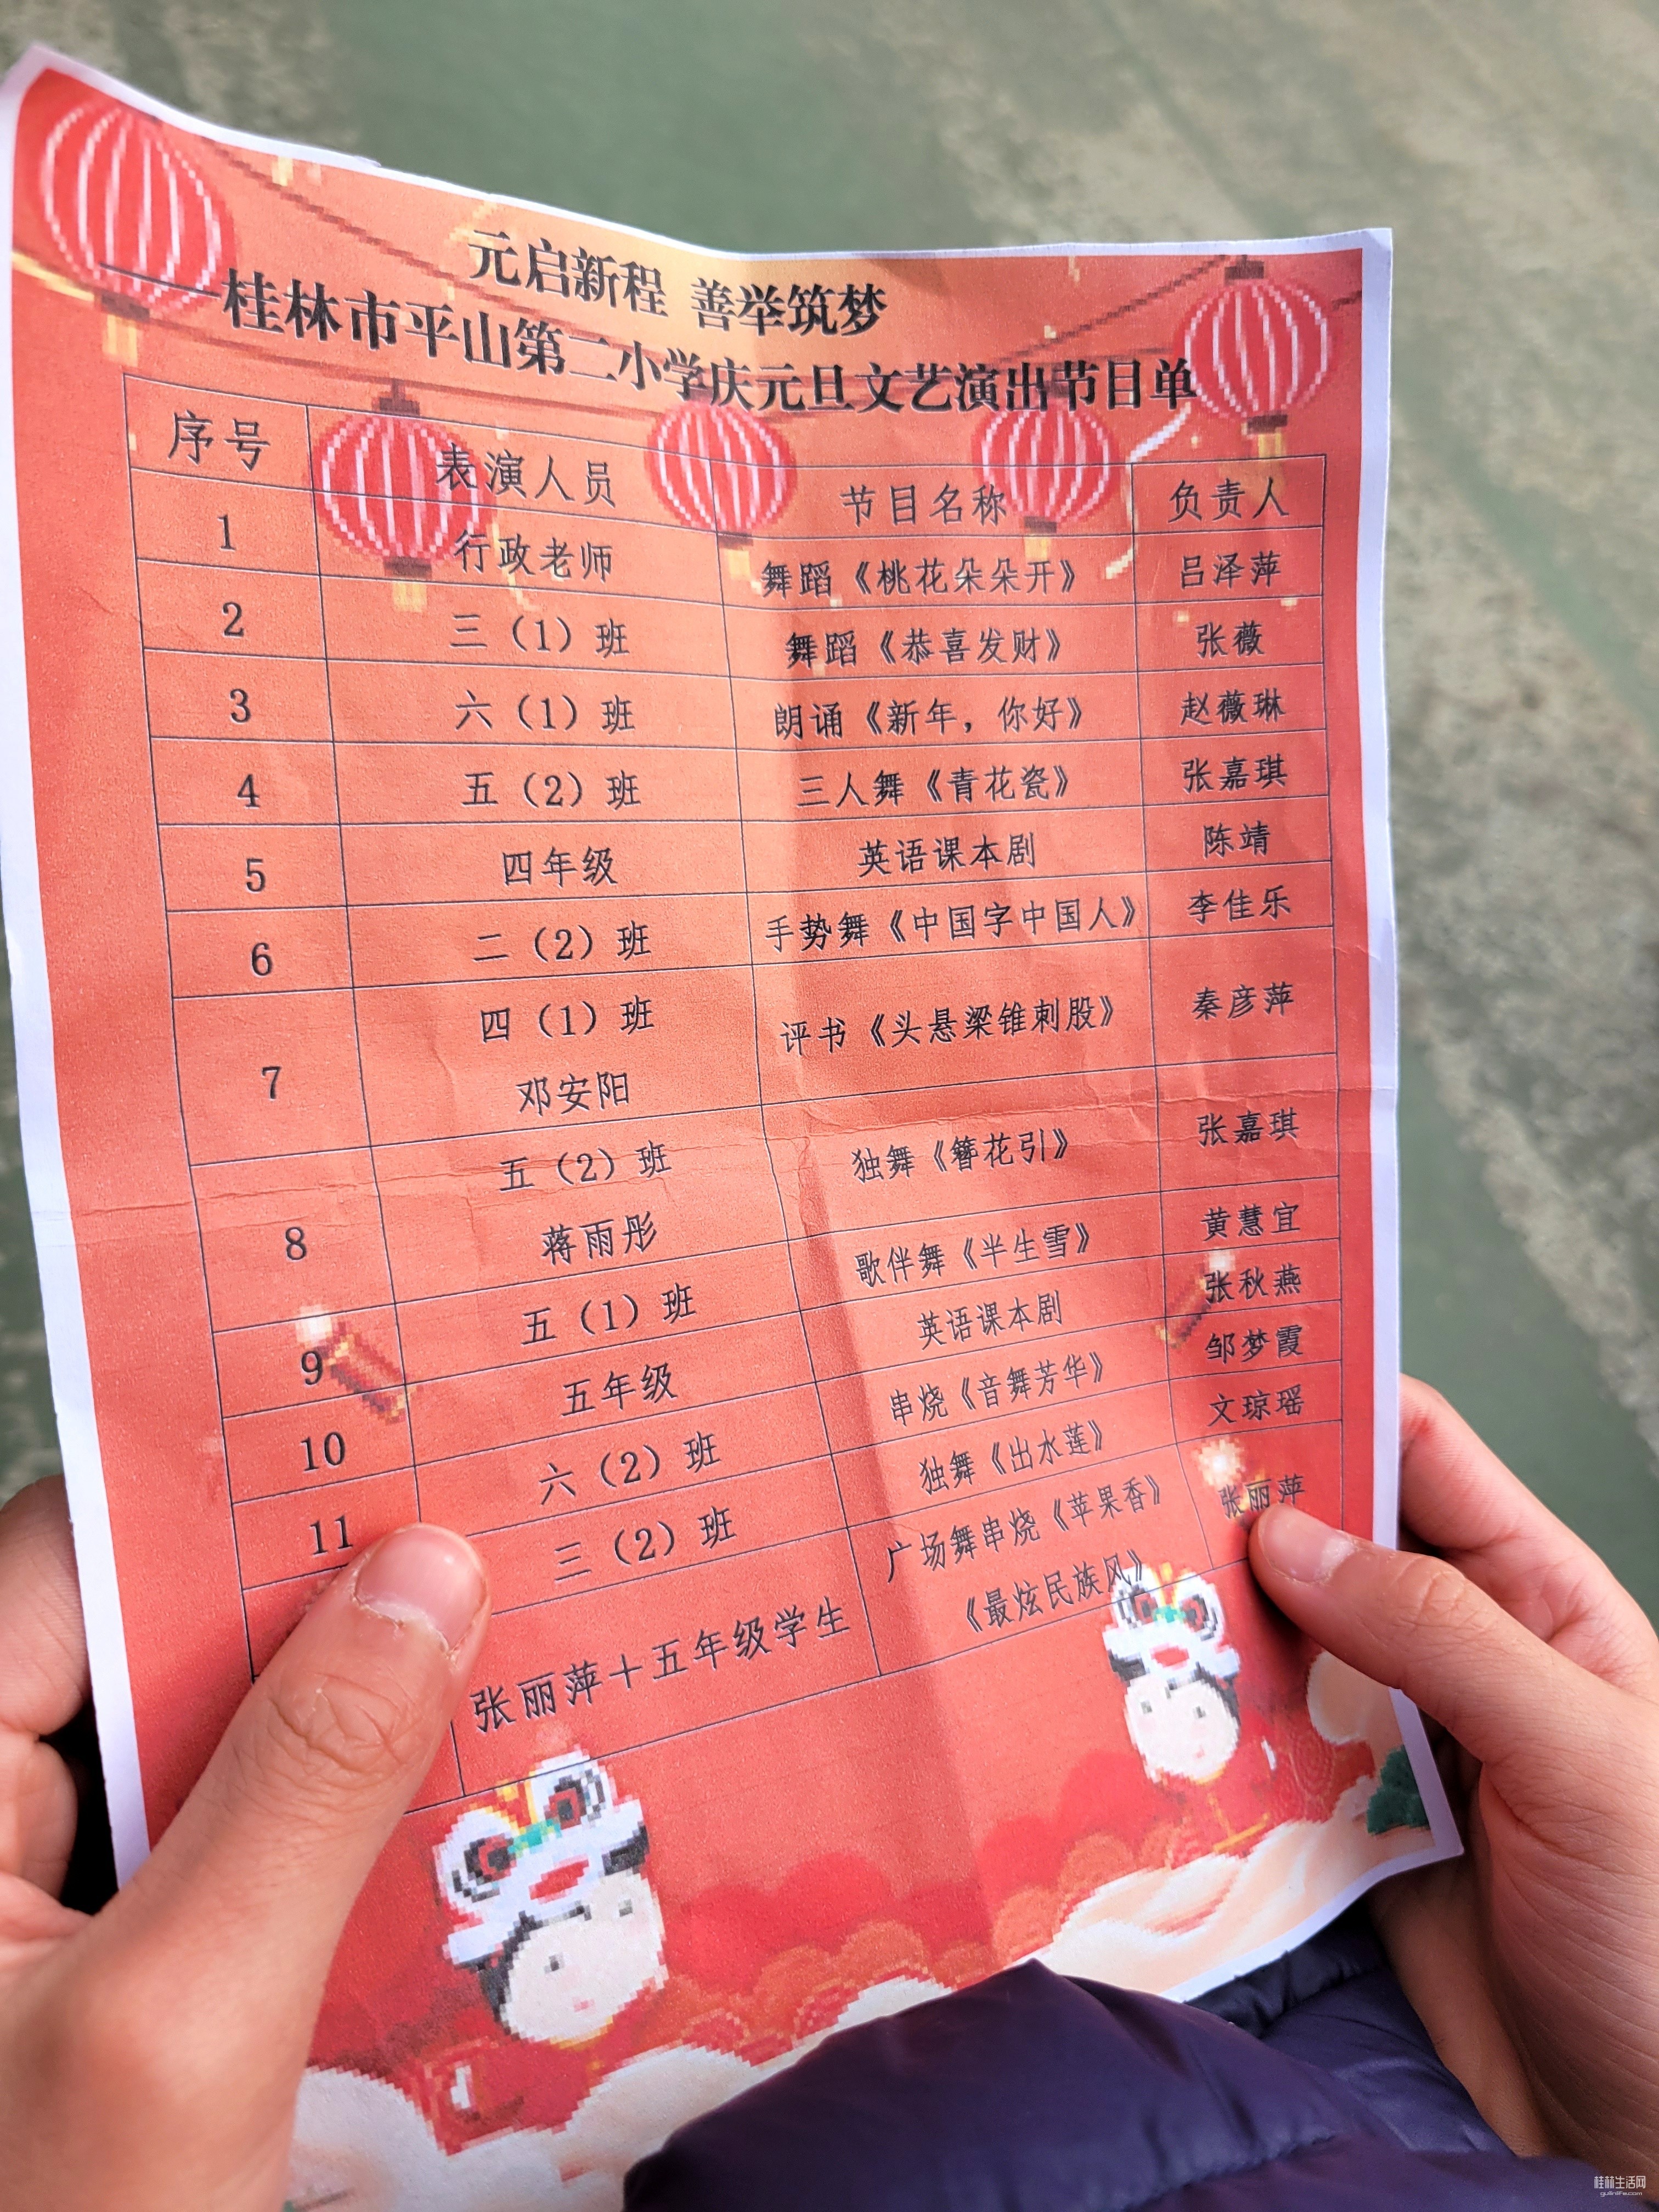 元启新程 善举筑梦
——桂林市平山第二小学庆元旦文艺演出节目单
序号 表演人员 节目名称 负责人
1 行政老师 舞蹈《桃花朵朵开》 吕泽萍
2 三（1）班 舞蹈《恭喜发财》 张薇
3 六（1）班 朗诵《新年，你好》 赵薇琳
4 五（2）班 三人舞《青花瓷》 张嘉琪
5 四年级 英语课本剧 陈靖
6 二（2）班 手势舞《中国字中国人》 李佳乐
7 四（1）班 邓安阳 评书《头悬梁锥刺股》 秦彦萍
8 五（2）班 蒋雨彤 独舞《簪花引》 张嘉琪
9 五（1）班 歌伴舞《半生雪》 黄慧宜
10 五年级 英语课本剧 张秋燕
11 六（2）班 串烧《音舞芳华》 邹梦霞
三（2）班 独舞《出水莲》 文琼瑶
张丽萍＋五年级学生 广场舞串烧《苹果香》《最炫民族风》 张丽萍
桂林生活网
guilinlife.com